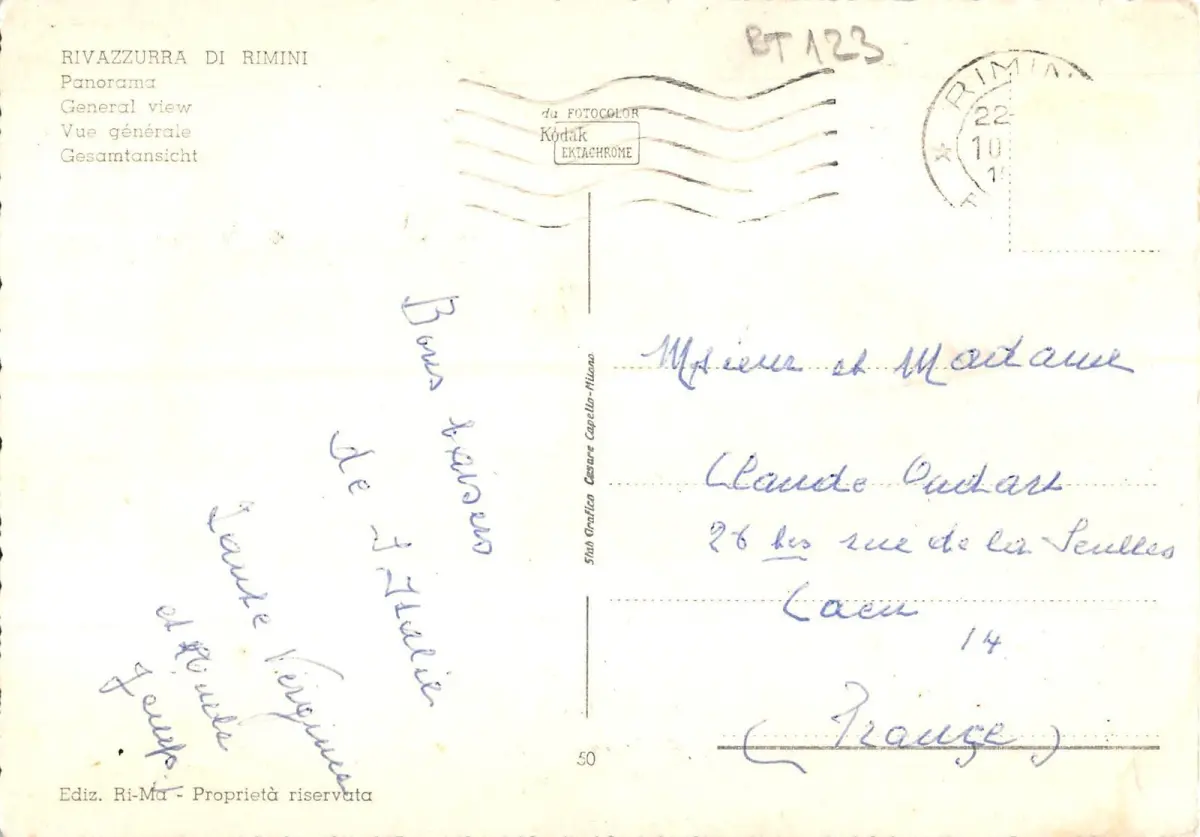 RIVAZZURRA DI RIMINI
Panorama
General view
Vue générale
Gesamtansicht
BT 123
da FOTOCOLOR
Kodak
EKTACHROME
RIMINI
22
10
Bons baisers
de l'Italie
Tante Virginie
et
Stab Grafico Cesare Capello-Milano
Msieur et Madame
Claude Oudart
26 bis rue de la Seulles
Caen
14
(France)
50
Ediz. Ri-Ma - Proprietà riservata